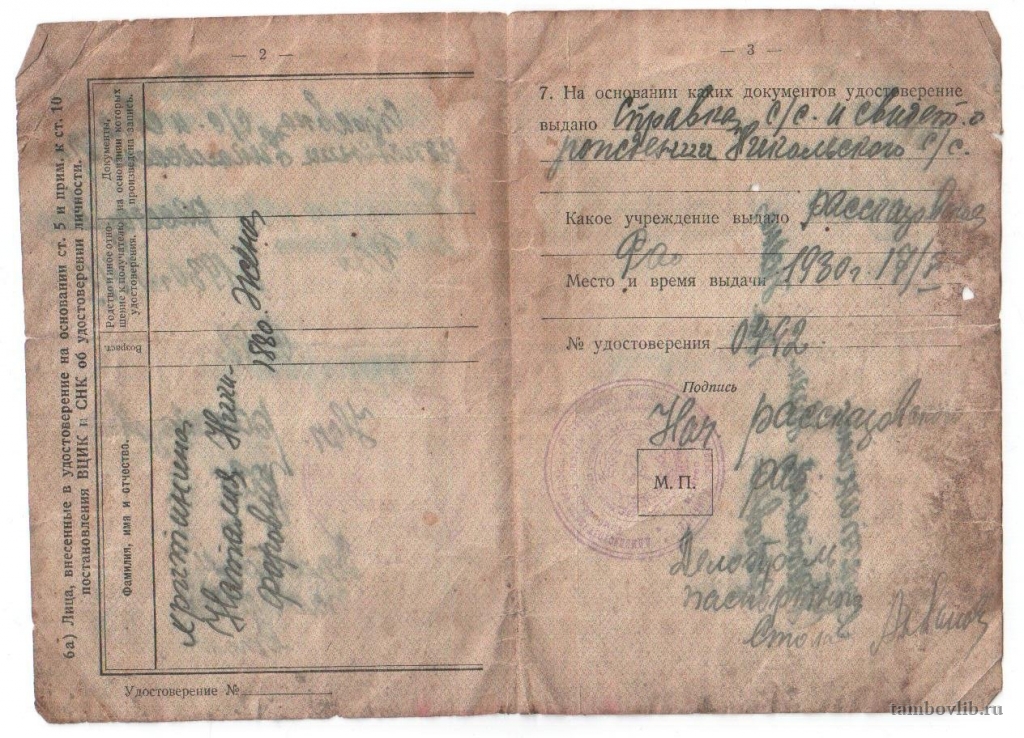 — 2 —
6а) Лица, внесенные в удостоверение на основании ст. 5 и прим. к ст. 10
постановления ВЦИК и СНК об удостоверении личности.
Фамилия, имя и отчество.
Возраст.
Родство и иное отно-
шение к получателю
удостоверения.
Документы,
на основании которых
произведена запись.
Наталия Ники-
форовна
1880.
Жена
Удостоверение №
— 3 —
7. На основании каких документов удостоверение
выдано Справка с/с. и свидет. о
рождении Никольского с/с.
Какое учреждение выдало
Место и время выдачи 1930 г. 17/
№ удостоверения 0442
Подпись
Нач
М. П.
Стола
tambovlib.ru